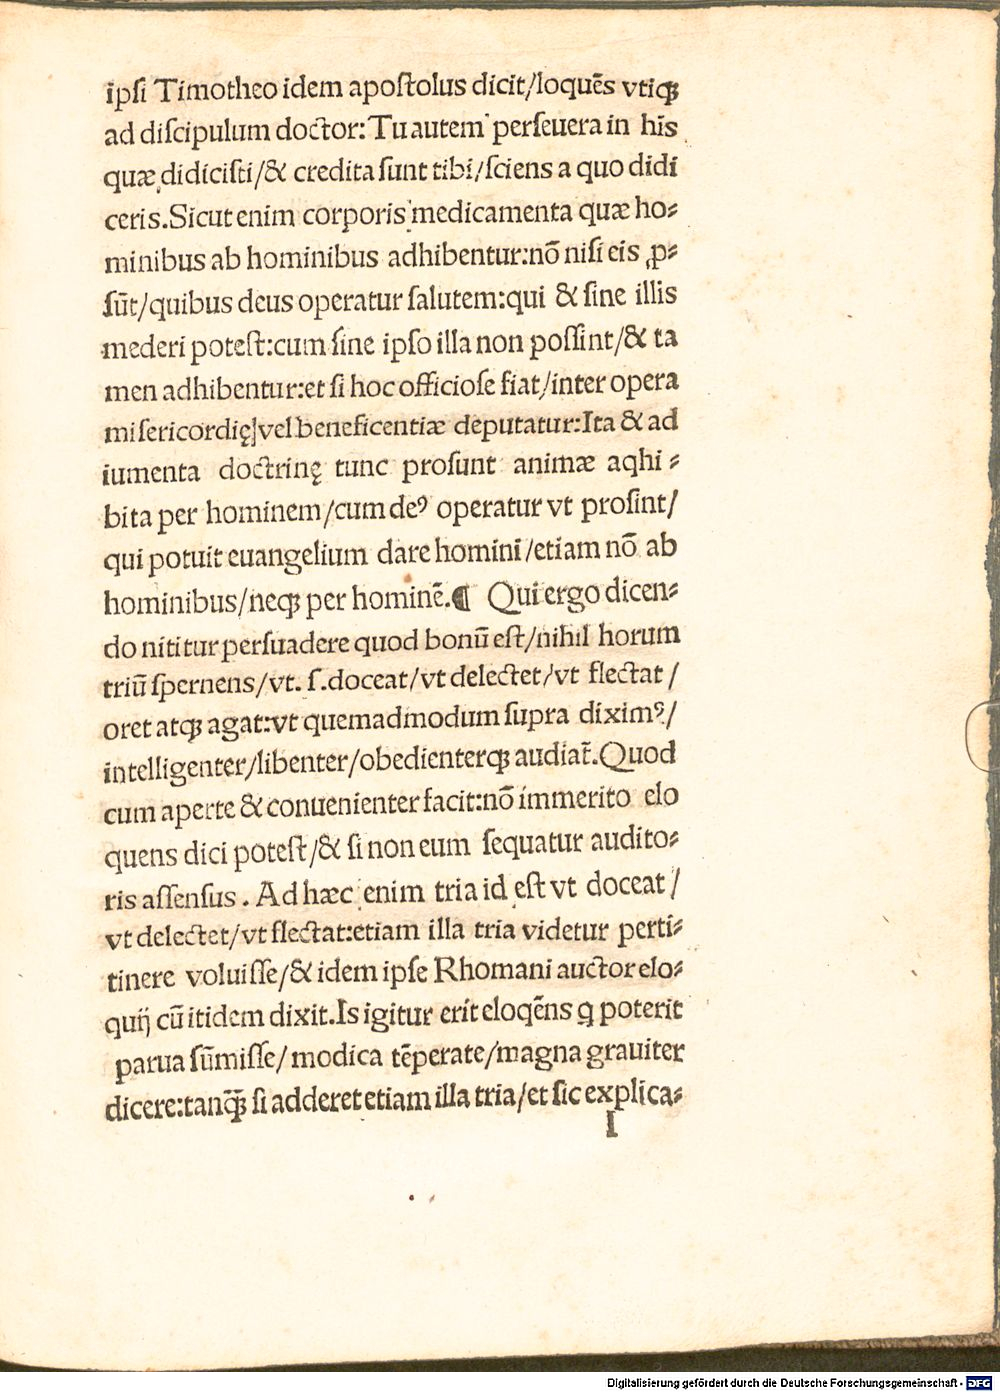 ipſi Timotheo idem apoſtolus dicit/loquēs vtiqꝫ
ad diſcipulum doctor:Tu autem perſeuera in his
quæ didiciſti/& credita ſunt tibi/ſciens a quo didi
ceris.Sicut enim corporis medicamenta quæ ho⸗
minibus ab hominibus adhibentur:nō niſi eis ꝓ⸗
ſūt/quibus deus operatur ſalutem:qui & ſine illis
mederi poteſt:cum ſine ipſo illa non poſſint/& ta
men adhibentur:et ſi hoc officioſe fiat/inter opera
miſericordię vel beneficentiæ deputatur:Ita & ad
iumenta doctrinę tunc proſunt animæ aqhi⸗
bita per hominem/cum deꝰ operatur vt proſint/
qui potuit euangelium dare homini/etiam nō ab
hominibus/neqꝫ per hominē.¶ Qui ergo dicen⸗
do nititur perſuadere quod bonū eſt/nihil horum
triū ſpernens/vt.ſ.doceat/vt delectet/vt flectat/
oret atqꝫ agat:vt quemadmodum ſupra diximꝰ/
intelligenter/libenter/obedienterqꝫ audiat̄.Quod
cum aperte & conuenienter facit:nō immerito elo
quens dici poteſt/& ſi non eum ſequatur audito⸗
ris aſſenſus. Ad hæc enim tria id eſt vt doceat/
vt delectet/vt flectat:etiam illa tria videtur perti⸗
tinere voluiſſe/& idem ipſe Rhomani auctor elo⸗
quij cū itidem dixit.Is igitur erit eloqēns q poterit
parua ſūmiſſe/modica tēperate/magna grauiter
dicere:tanq̄ꝫ ſi adderet etiam illa tria/et ſic explica⸗
I
Digitalisierung gefördert durch die Deutsche Forschungsgemeinschaft - DFG